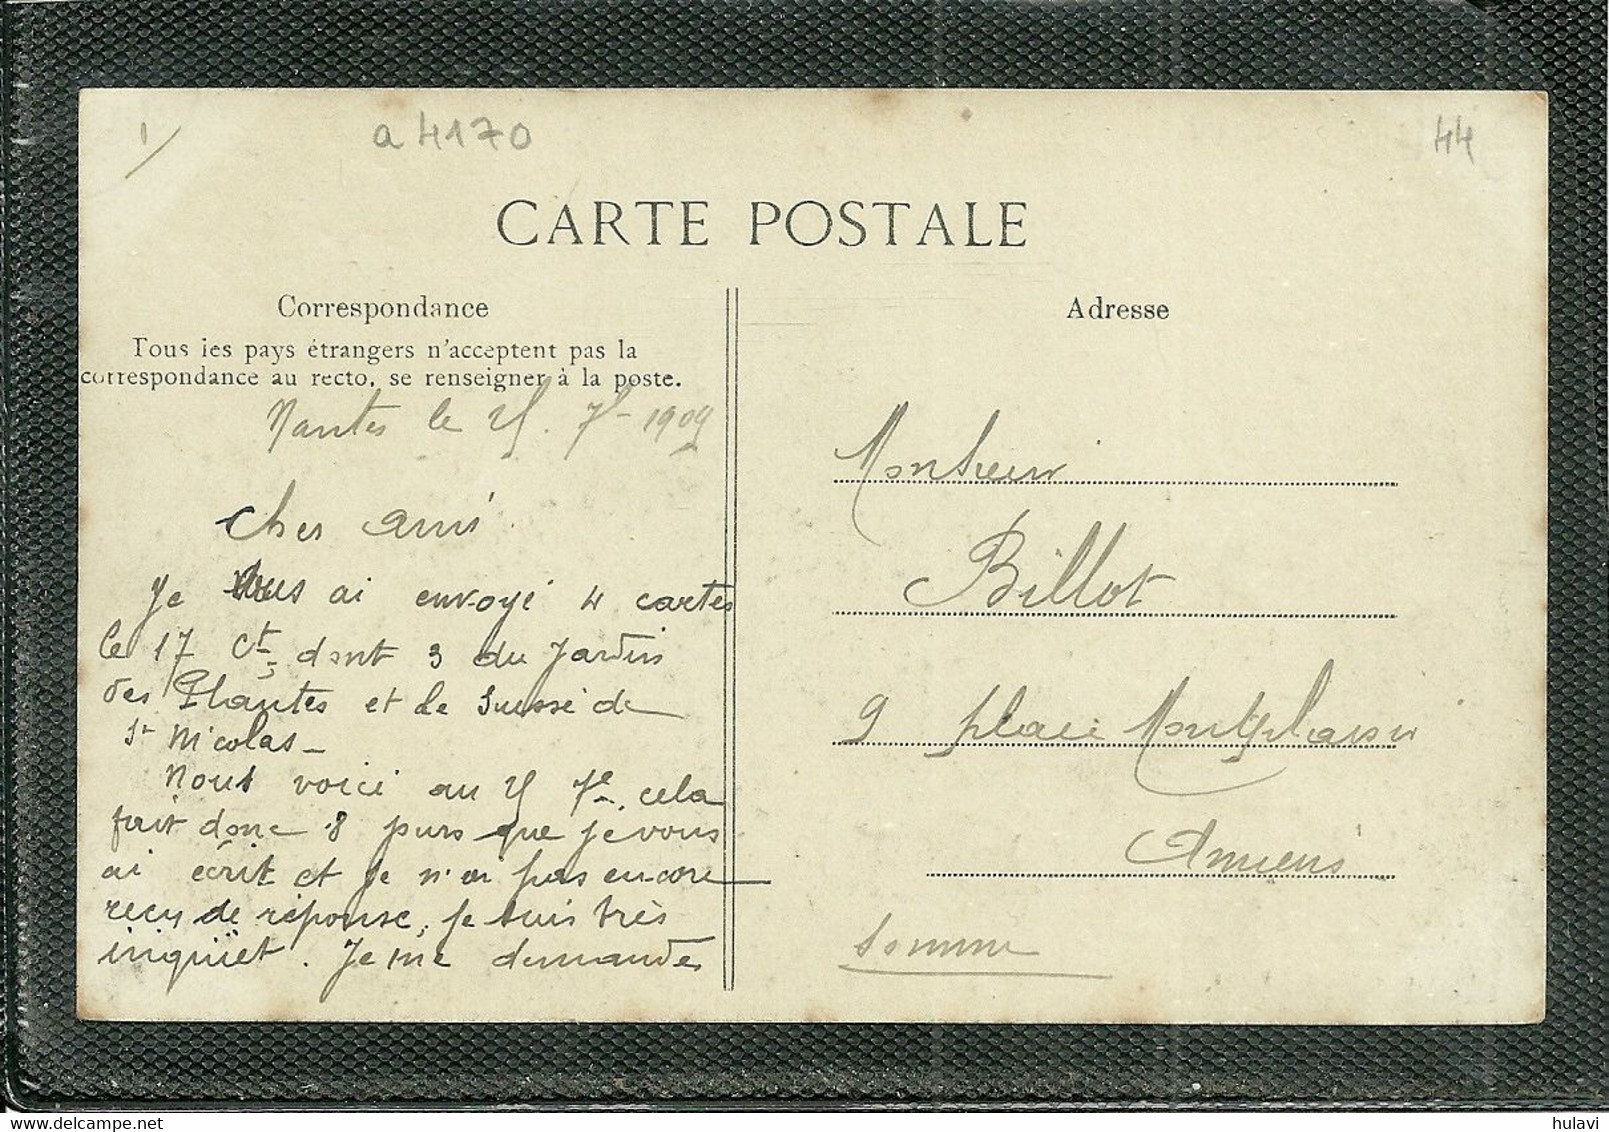 a 4170
44
CARTE POSTALE
Correspondance
Tous les pays étrangers n'acceptent pas la
correspondance au recto, se renseigner à la poste.
Nantes le 25. 7bre 1909
Cher ami
Je vous ai envoyé 4 cartes
le 17 Ct, dont 3 du Jardin
des Plantes et le de
St Nicolas-
Nous voici au 25 7bre, cela
fait donc 8 jours que je vous
ai écrit et je n'ai pas encore
reçu de réponse, je suis très
inquiet. Je me demande
Adresse
Monsieur
Billot
9 place Montplaisir
Amiens
Somme
delcampe.net
hulavi